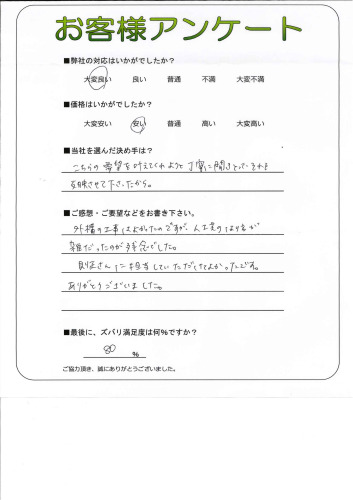 お客様アンケート
■弊社の対応はいかがでしたか？
大変良い 良い 普通 不満 大変不満
■価格はいかがでしたか？
大変安い 安い 普通 高い 大変高い
■当社を選んだ決め手は？
こちらの希望を叶えてくれようと丁寧に聞きとってそれを
反映させて下さったから。
■ご感想・ご要望などをお書き下さい。
外構の工事はよかったのですが、人工芝のはり方が
雑だったのが残念でした。
さんに担当していただけてよかったです。
ありがとうございました。
■最後に、ズバリ満足度は何%ですか？
80 %
ご協力頂き、誠にありがとうございました。